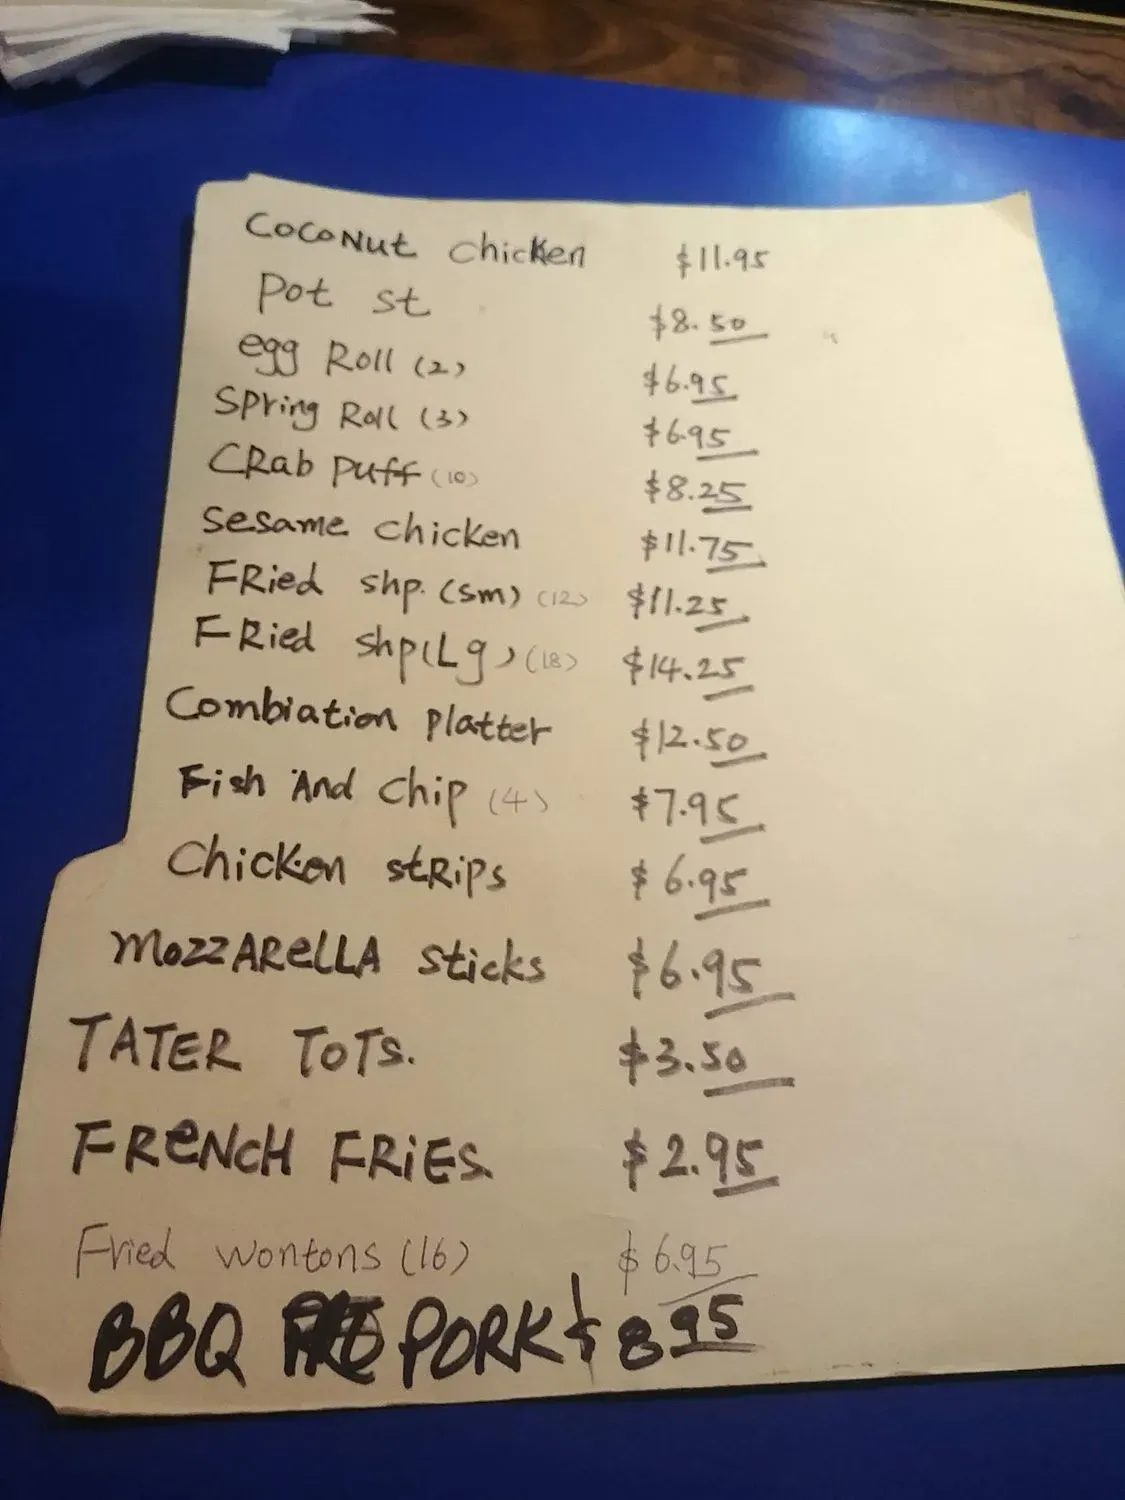 Coconut chicken $11.95
Pot st $8.50
egg Roll (2) $6.95
Spring Roll (3) $6.95
CRab puff (10) $8.25
Sesame chicken $11.75
FRied shp. (sm) (12) $11.25
FRied shp (Lg) (18) $14.25
Combiation platter $12.50
Fish And chip (4) $7.95
Chicken stRips $6.95
MozzARellA sticks $6.95
TATER TOTS. $3.50
FReNCH FRiES. $2.95
Fried wontons (16) $6.95
BBQ PORK $8.95